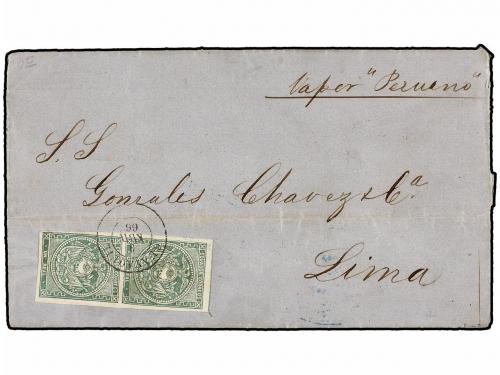 Vapor "Peruano"
S. S
Gonzales Chavez & Cª.
Lima
66